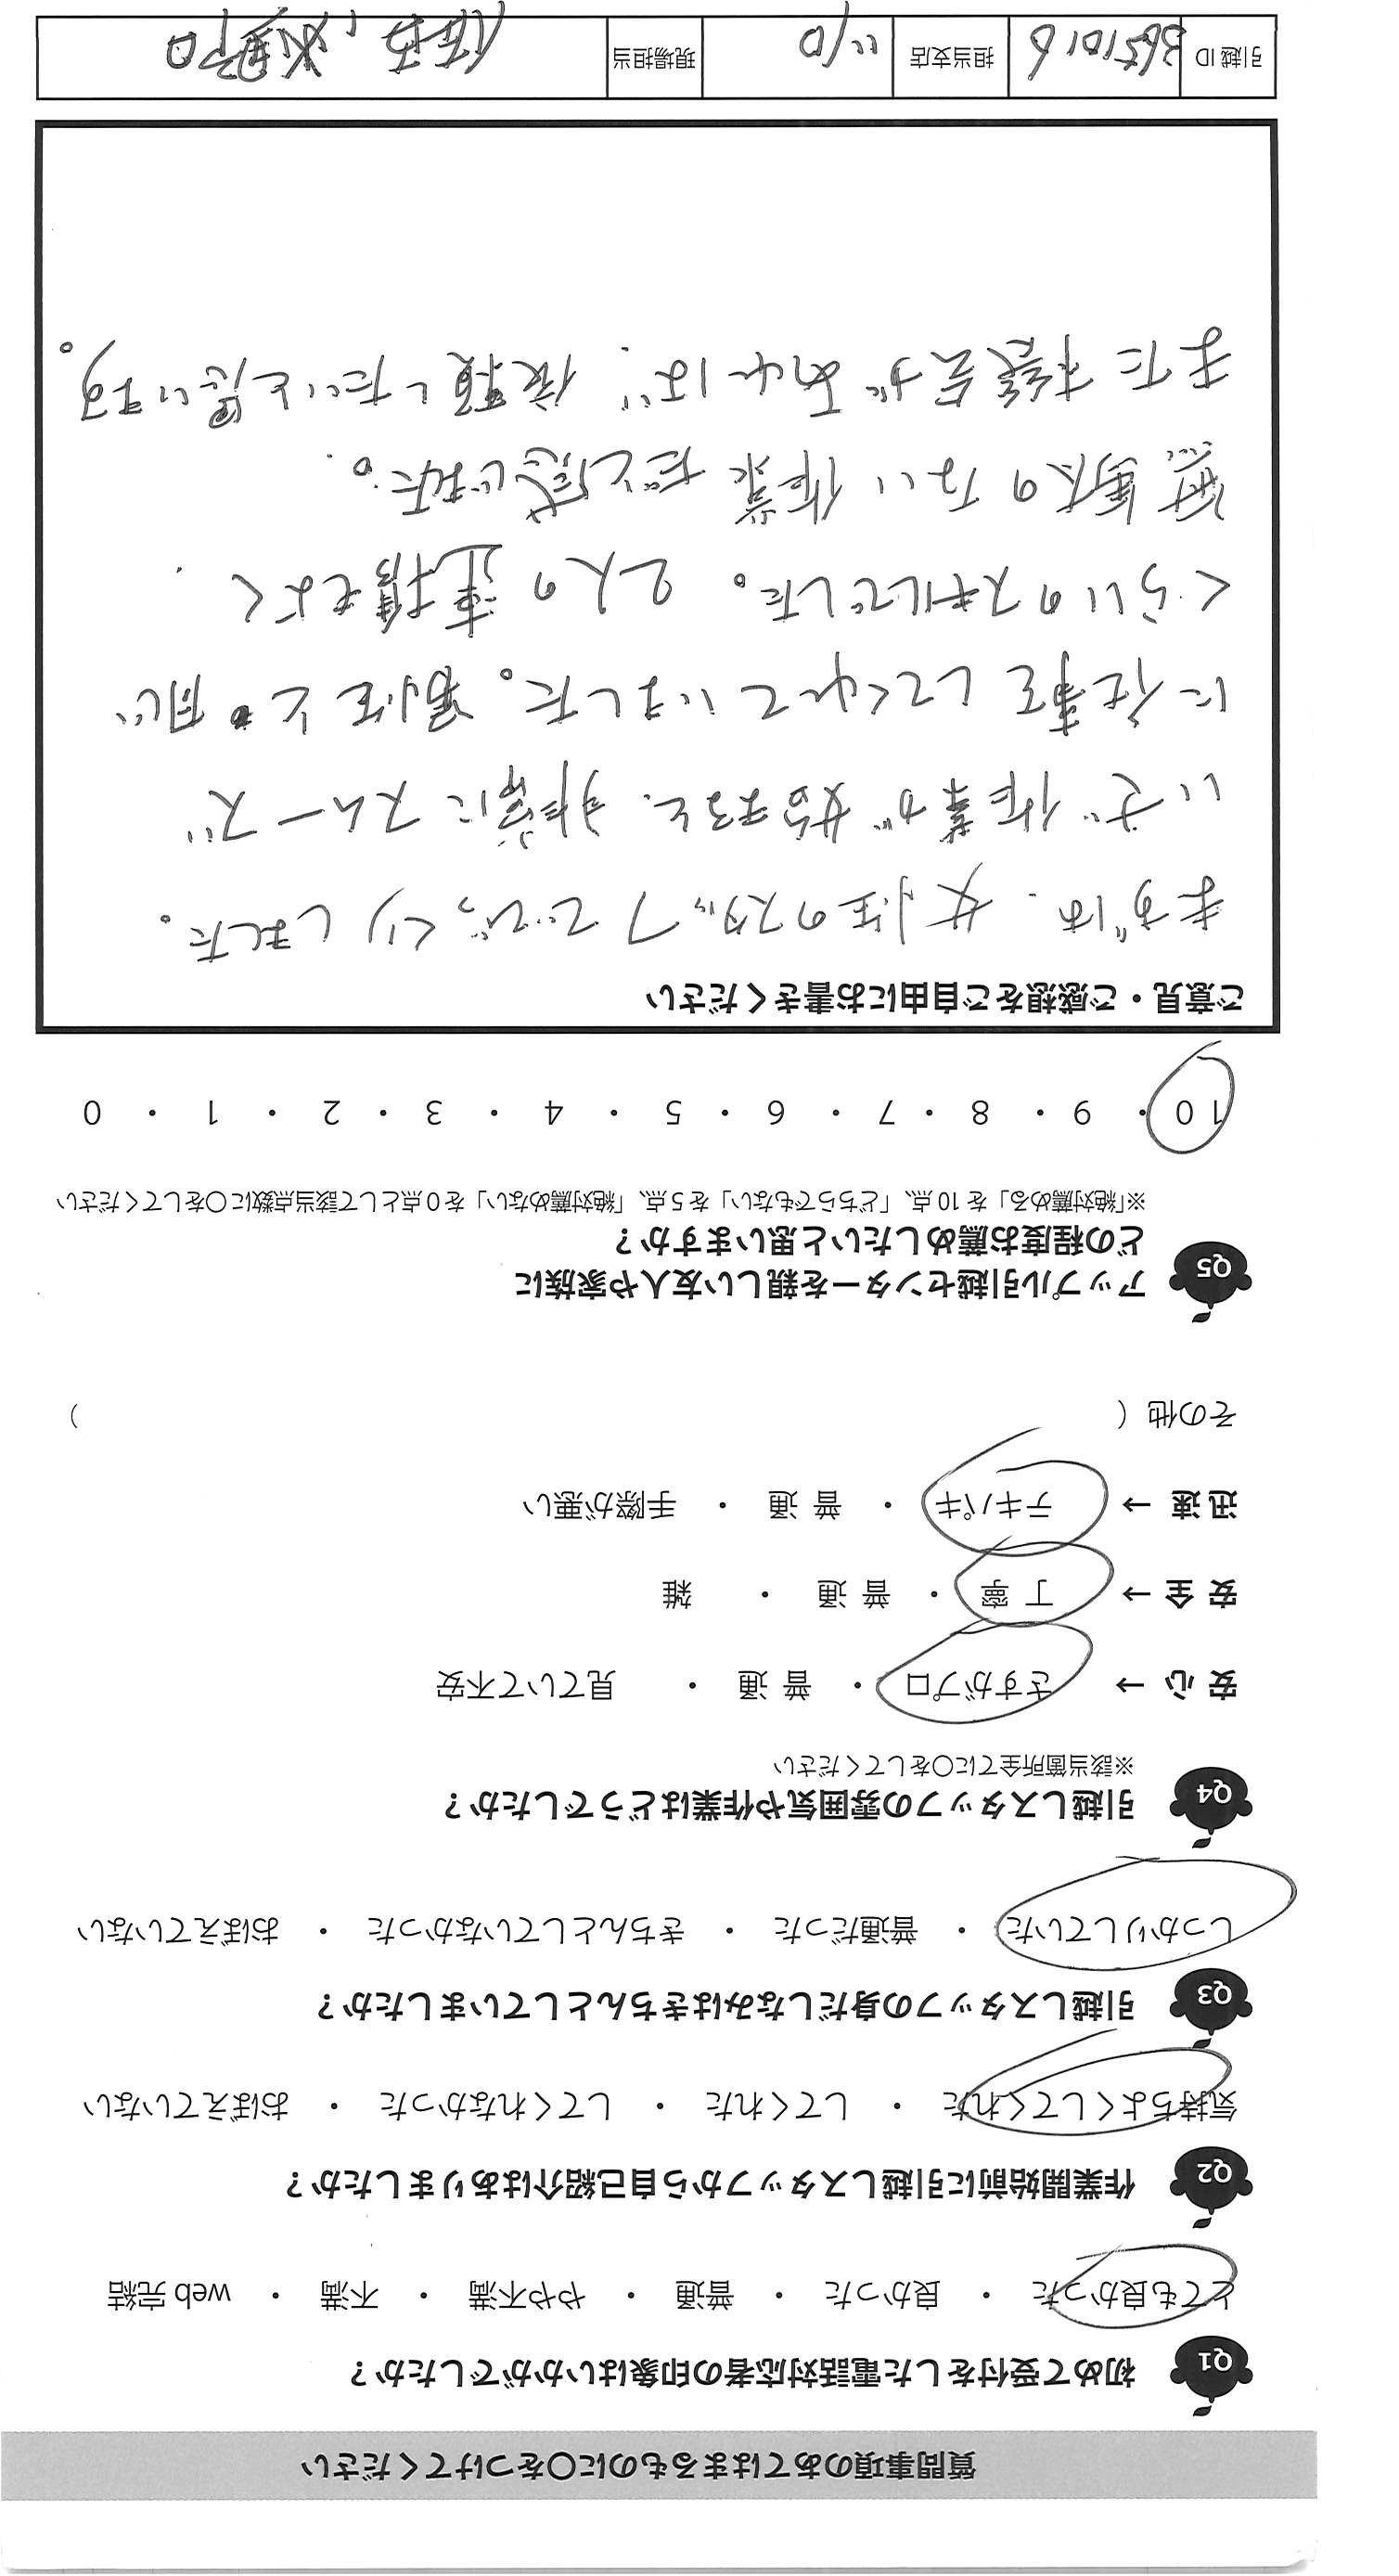 質問事項のあてはまるものに○をつけてください
Q1 初めて受付をした電話対応者の印象はいかがでしたか？
とても良かった ・ 良かった ・ 普通 ・ やや不満 ・ 不満 ・ web 完結
Q2 作業開始前に引越しスタッフから自己紹介はありましたか？
気持ちよくしてくれた ・ してくれた ・ してくれなかった ・ おぼえていない
Q3 引越しスタッフの身だしなみはきちんとしていましたか？
しっかりしていた ・ 普通だった ・ きちんとしていなかった ・ おぼえていない
Q4 引越しスタッフの雰囲気や作業はどうでしたか？
※該当箇所全てに○をしてください
安 心 → さすがプロ ・ 普 通 ・ 見ていて不安
安 全 → 丁 寧 ・ 普 通 ・ 雑
迅 速 → テキパキ ・ 普 通 ・ 手際が悪い
その他（ ）
Q5 アップル引越センターを親しい友人や家族に
どの程度お薦めしたいと思いますか？
※「絶対薦める」を 10 点、「どちらでもない」を 5 点、「絶対薦めない」を 0 点として該当点数に○をしてください
10 ・ 9 ・ 8 ・ 7 ・ 6 ・ 5 ・ 4 ・ 3 ・ 2 ・ 1 ・ 0
ご意見・ご感想をご自由にお書きください
まずは、女性のスタッフでびっくりしました。
いざ作業が始まると、非常にスムーズ
に仕事をしてくれていました。男性と同じ
くらいのスキルでした。2人の連携もよく
無駄のない作業だと感じました。
また機会があれば、依頼したいと思います。
引越 ID 3651016 担当支店 現場担当